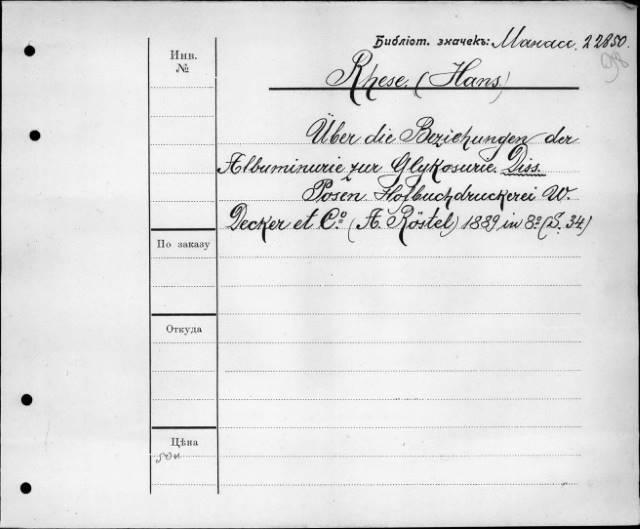 Библіот. значекъ: Манасс. 22850.
98
Инв.
№
Rhese. (Hans)
Über die Beziehungen der
Albuminurie zur Glykosurie. Diss.
Posen. Hofbuchdruckerei W.
Decker et Cº. (A. Röstel) 1889 in 8º. (S. 34)
По заказу
Откуда
Цѣна